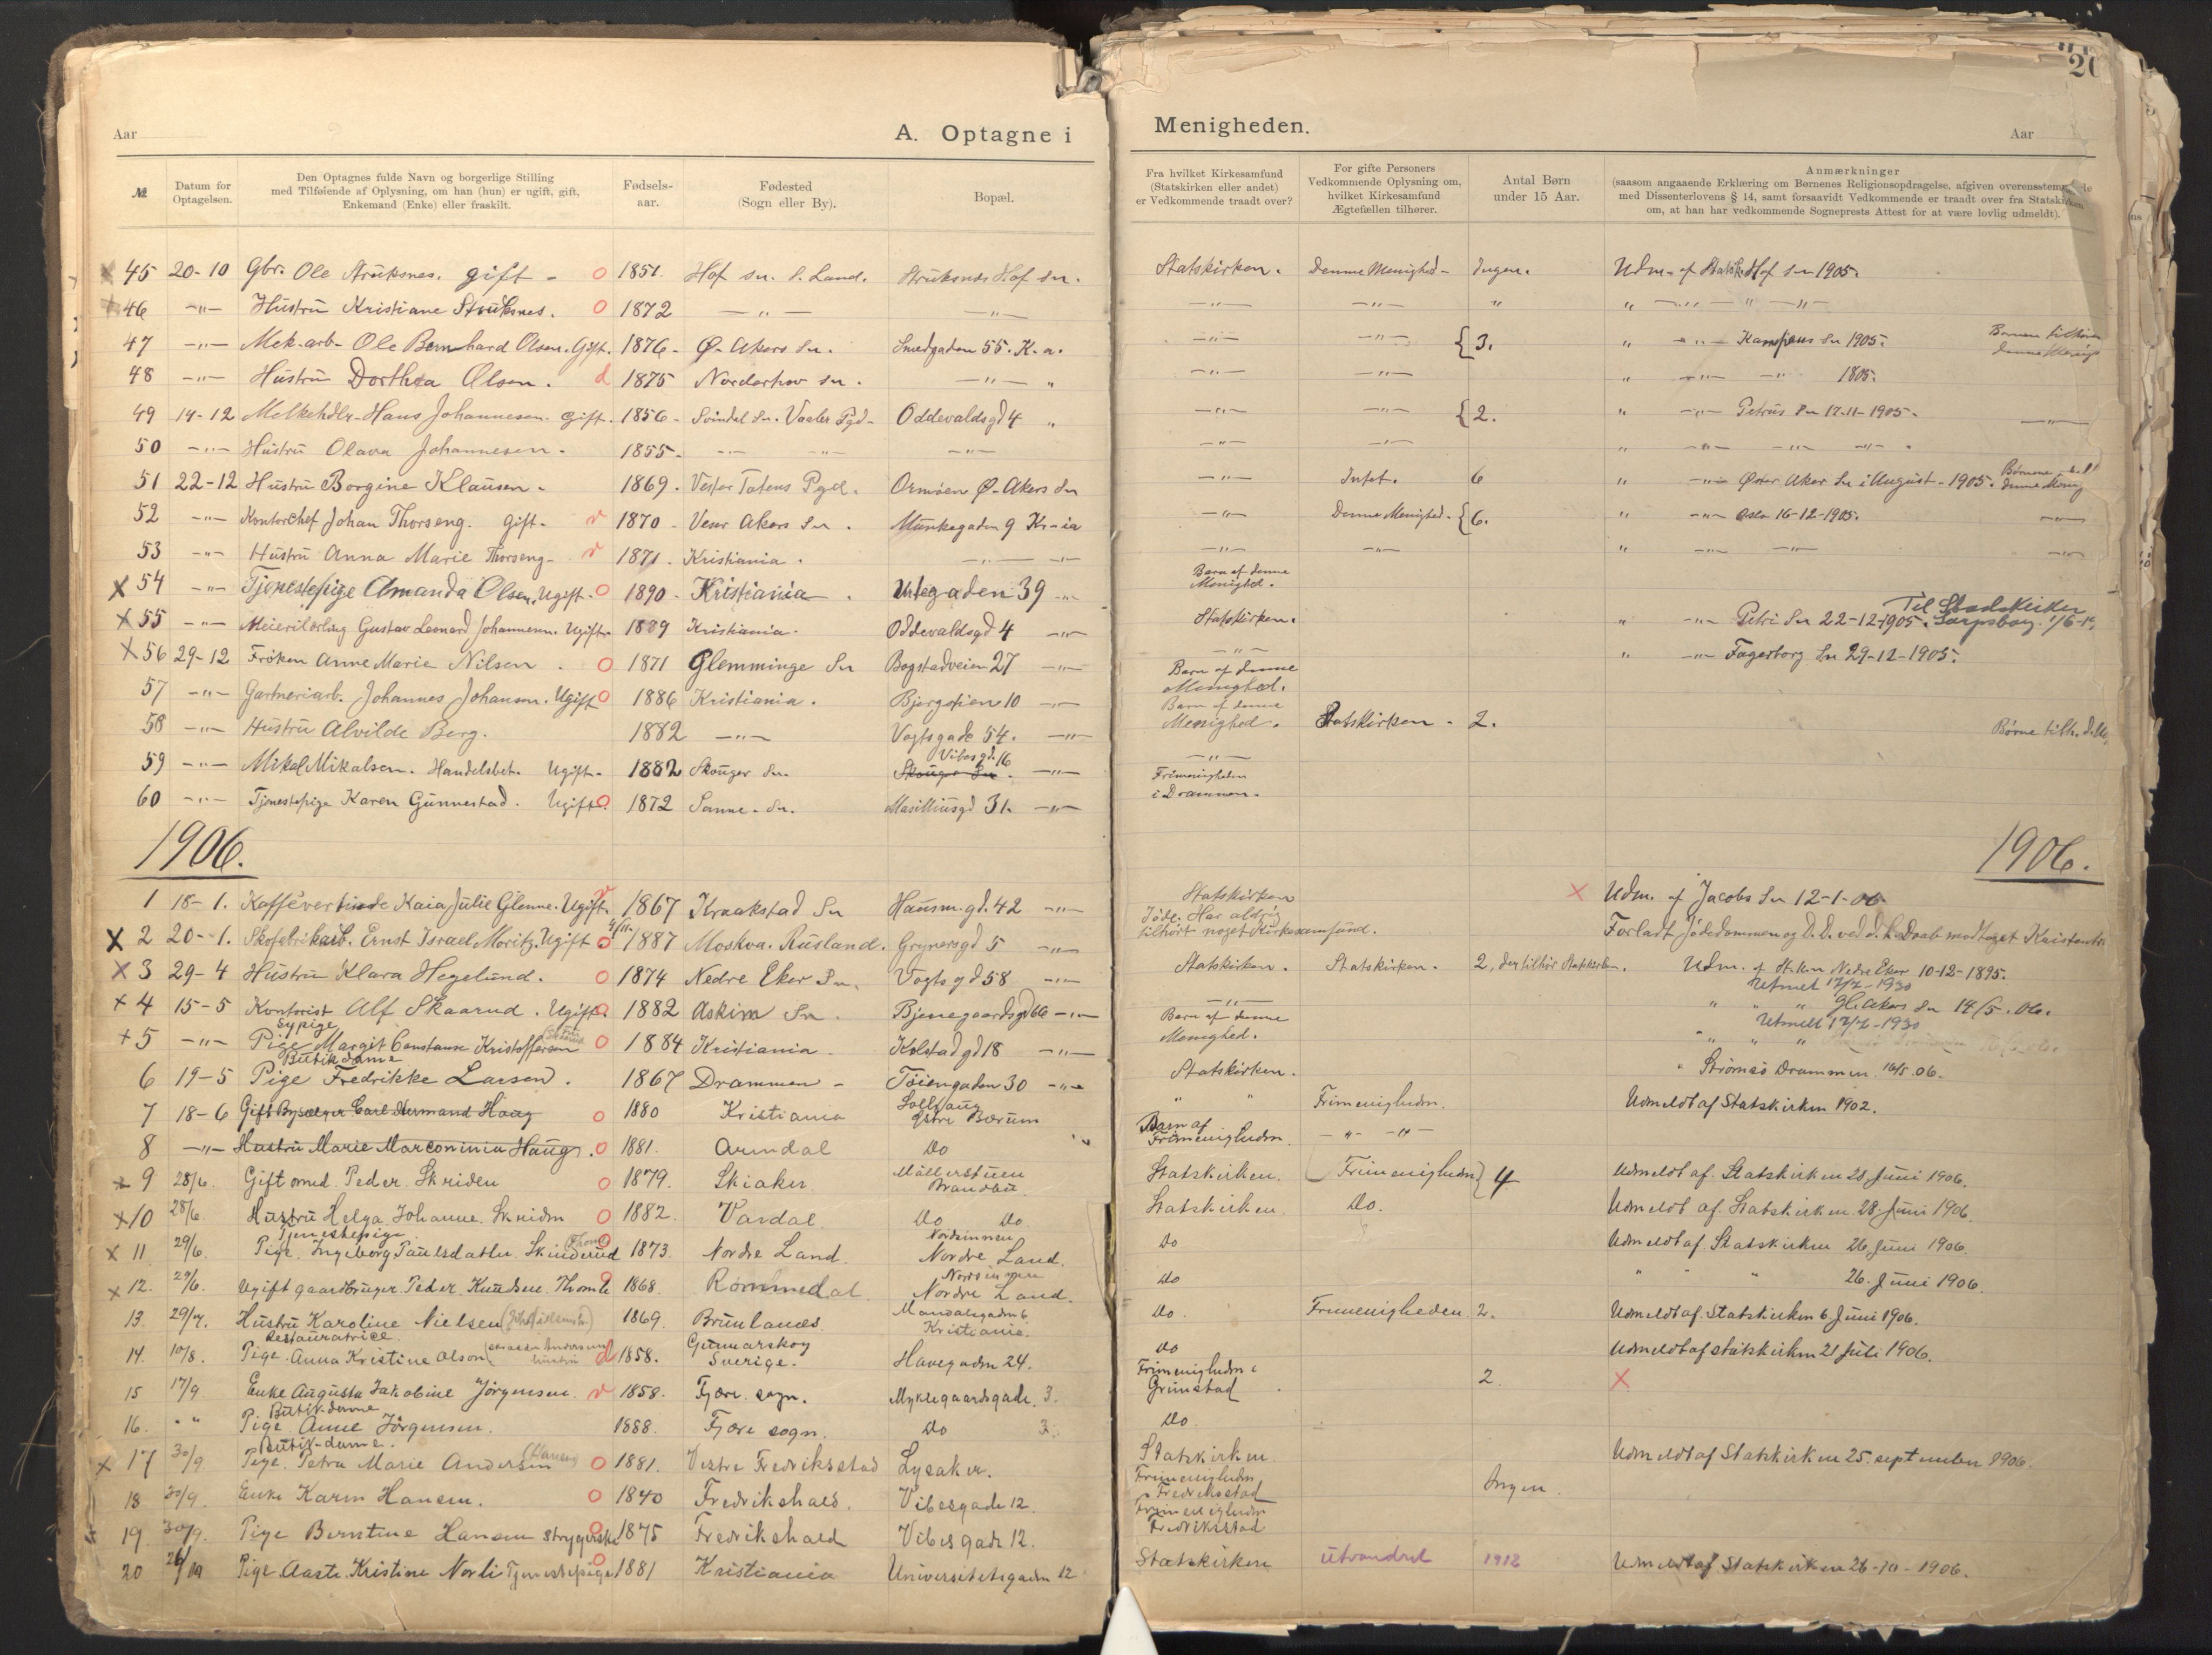 Aar
A. Optagne i
№
Datum for
Optagelsen.
Den Optagnes fulde Navn og borgerlige Stilling
med Tilføiende af Oplysning, om han (hun) er ugift, gift,
Enkemand (Enke) eller fraskilt.
Fødsels-
aar.
Fødested
(Sogn eller By).
Bopæl.
45 20-10 Gbr. Ole Struksnes. gift - 1851. Hof sn. S. Land. Struksnes Hof sn.
46 -"- Hustru Kristiane Struksnes. 1872 -"- -"-
47 -"- Mek-arb- Ole Bernhard Olsen. Gift. 1876- Ø-Akers Sn. Smedgaden 55. K.a.
48 -"- Hustru Dorthea Olsen. 1875 Norderhov sn. -"- "
49 14-12 Melkehdlr- Hans Johannesen. gift. 1856- Svindal Sn. Vaaler Pgd- Oddevaldsgd 4 "
50 -"- Hustru Olava Johannesen. 1855- -"- -"- -"-
51 22-12 Hustru Borgine Klausen. 1869. Vestre Totens Pgd. Ormøen Ø-Akers Sn
52 -"- Kontorchef Johan Thorseng. gift. 1870- Vestr Akers Sn. Munkegaden 9 Kr-ia
53 -"- Hustru Anna Marie Thorseng- 1871. Kristiania. -"- -"-
54 -"- Tjenestepige Amanda Olsen. Ugift. 1890- Kristiania. Urtegaden 39 -"-
55 -"- Meierilærling Gustav Leonard Johannesen. Ugift. 1889 Kristiania. Oddevaldsgd 4 -"-
56 29-12 Frøken Anne Marie Nilsen. 1871 Glemminge Sn Bogstadveien 27 -"-
57 -"- Gartneriarb. Johannes Johansen. Ugift 1886 Kristiania. Bjergstien 10 -"-
58 -"- Hustru Alvilde Berg. 1882 -"- Vogtsgade 54. -"-
Vibesgd. 16
59 -"- Mikal Mikalsen. Handelsbet. Ugift. 1882 Skouger Sn. Skouger Sn. -"-
60 -"- Tjenestepige Karen Gunnestad. Ugift. 1872 Sanne-Sn. 31. -"-
1906.
1 18-1. Kaffévertinde Kaia Julie Glenne. Ugift. 1867 Kraakstad Sn Hausm.gd. 42 -"-
2 20-1. Skofabrikarb. Ernst Israel Moritz. Ugift 1887 Moskva. Rusland. Grynersgd 5 -"-
3 29-4 Hustru Klara Hegelund. 1874 Nedre Eker Sn. Vogtsgd 58 -"-
4 15-5 Kontorist Alf Skaarud. Ugift. 1882 Askim Sn. Bjenegaardsgd 6b -"-
Sypige
5 -"- Pige Margit Constanse Kristoffersen 1884 Kristiania. Kolstadgd 18 -"-
Butikdame
6 19-5 Pige Fredrikke Larsen. 1867 Drammen - Tøiengaden 30 -"-
7 18-6 Gift Bysælger Carl Hermand Haug 1880 Kristiania Solhaug Østre Bærum
8 -"- Hustru Marie Marconinia Haug. 1881. Arendal Do
9 28/6. Gift omd. Peder Skriden 1879. Skiaker Møllerstuen
Brandbu.
10 28/6. Hustru Helga Johanne Skriden 1882. Vardal Do Do.
Tjenestepige
11 29/6. Pige. Ingeborg Paulsdatter Skinderud 1873. Nordre Land. Nordsinnen
Nordre Land.
12. 29/6. Ugift gaardbruger Peder Knudsen Thomle 1868. Rommedal Nordsinnen
Nordre Land.
13. 29/7. Hustru Karoline Nielsen 1869. Brunlanes. Mandalsgaden 6
Kristiania.
Restauratrice.
14. 10/8. Pige. Anna Kristine Olson 1858. Gunnarskog
Sverige. Havegaden 24.
15 17/9 Enke Augusta Jakobine Jørgensen. 1858. Fjære sogn. Myklegaardsgade 3.
Butikdame
16. " " Pige Anne Jørgensen. 1888. Fjære sogn. Do 3.
Butik-dame.
17 30/9 Pige. Petra Marie Andersen 1881. Vestre Fredriksstad Lysaker.
18 30/9. Enke Karen Hansen. 1840 Fredrikshald. Vibesgade 12.
19 30/9. Pige Berntine Hansen strygerske 1875 Fredrikshald Vibesgade 12.
20 26/10 Pige Aaste Kristine Norli Tjenestepige 1881 Kristiania Universitetsgaden 12
Menigheden.
Aar
Fra hvilket Kirkesamfund
(Statskirken eller andet)
er Vedkommende traadt over?
For gifte Personers
Vedkommende Oplysning om,
hvilket Kirkesamfund
Ægtefællen tilhører.
Antal Børn
under 15 Aar.
Anmærkninger
(saasom angaaende Erklæring om Børnenes Religionsopdragelse, afgiven overensstem
med Dissenterlovens § 14, samt forsaavidt Vedkommende er traadt over fra Statskirken
om, at han har vedkommende Sogneprests Attest for at være lovlig udmeldt).
Statskirken. Denne Menighed- Ingen. Udm. af Statsk. Hof sn 1905.
-"- -"- " " -"- " -"-
-"- -"- {3. " -"- Kampens Sn 1905. Børnen tilhører
denne Menigh
-"- -"- " -"- -"- 1905.
-"- -"- {2. " -"- Petrus Sn 12.11-1905. -"-
-"- -"- " -"- -"- -"-
-"- Intet. 6 " -"- Øster Aker Sn i August-1905. Børnene
denne Menig
-"- Denne Menighed. {6. " -"- Oslo 16-12-1905. -"-
-"- -"- " -"- -"- -"-
Barn af denne
Menighed.
Til Stadskirken
Statskirken. " -"- Petri Sn 22-12-1905. Sarpsborg.
-"- " -"- Fagerborg Sn 29-12-1905.
Barn af denne
Menighed.
Barn af denne
Menighed. Statskirken. 2. Børne tilh.
-"-
Frimenigheden
i Drammen.
1906.
Statskirken Udm. af Jacobs Sn 12-1-06
Jøde. Har aldrig
tilhørt noget Kirkesamfund. Forladt Jødedommen og D. D. ved d. h. Daab modtaget
Statskirken. Statskirken. 2, der tilhør Statskirken. Udm. af St.kn Nedre Eker 10-12-1895.
Utmeldt 17/7-1930
-"- " " " Gl. Akers Sn 14/5.06.
Barn af denne
Menighed. Utmeldt 17/7-1930
Statskirken. " Strømsø Drammen. 16/5 06.
" " Frimenigheden. Udmeldt af Statskirken 1902.
Barn af
Frimenigheden. -"- -"-
Statskirken. Frimenigheden} 4 Udmeldt af. Statskirken 28 Juni 1906.
Statskirken Do. Udmeldt af Statskirken. 28 Juni 1906.
Do Udmeldt af. Statskirken 26 Juni 1906.
Do " " " 26. Juni 1906.
Do. Frimenigheden 2. Udmeldt af. Statskirken 6 Juni 1906.
Do Udmeldt af statskirken 21 Juli 1906.
Frimenigheden i
Grimstad 2
Do
Statskirken Udmeldt af Statskirken 25. september 1906.
Frimenigheden
Fredriksstad Ingen.
Frimenigheden
Fredriksstad
Statskirken utvandret 1912 Udmeldt af Statskirken 26-10-1906.